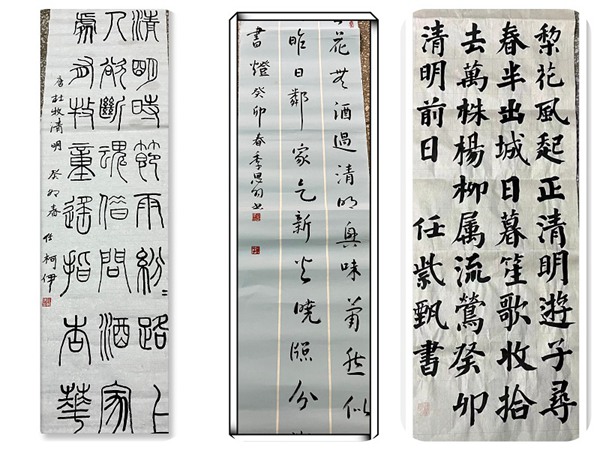 清明時節雨紛〻路上
人欲斷魂借問酒家
處有牧童遙指杏華
唐杜牧清明 癸卯春 任柯伊
花無酒過清明興味蕭然似
昨日鄰家乞新火曉窗分
書燈 癸卯春季思
梨花風起正清明遊子尋
春半出城日暮笙歌收拾
去萬株楊柳属流鶯癸卯
清明前日 任紫甄書